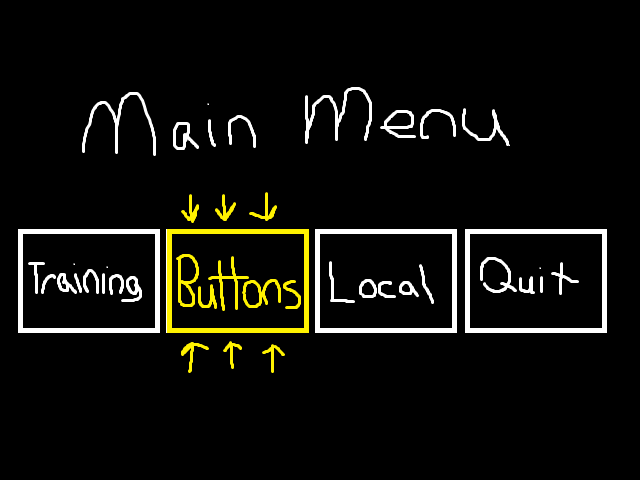 Main Menu
Training Buttons Local Quit